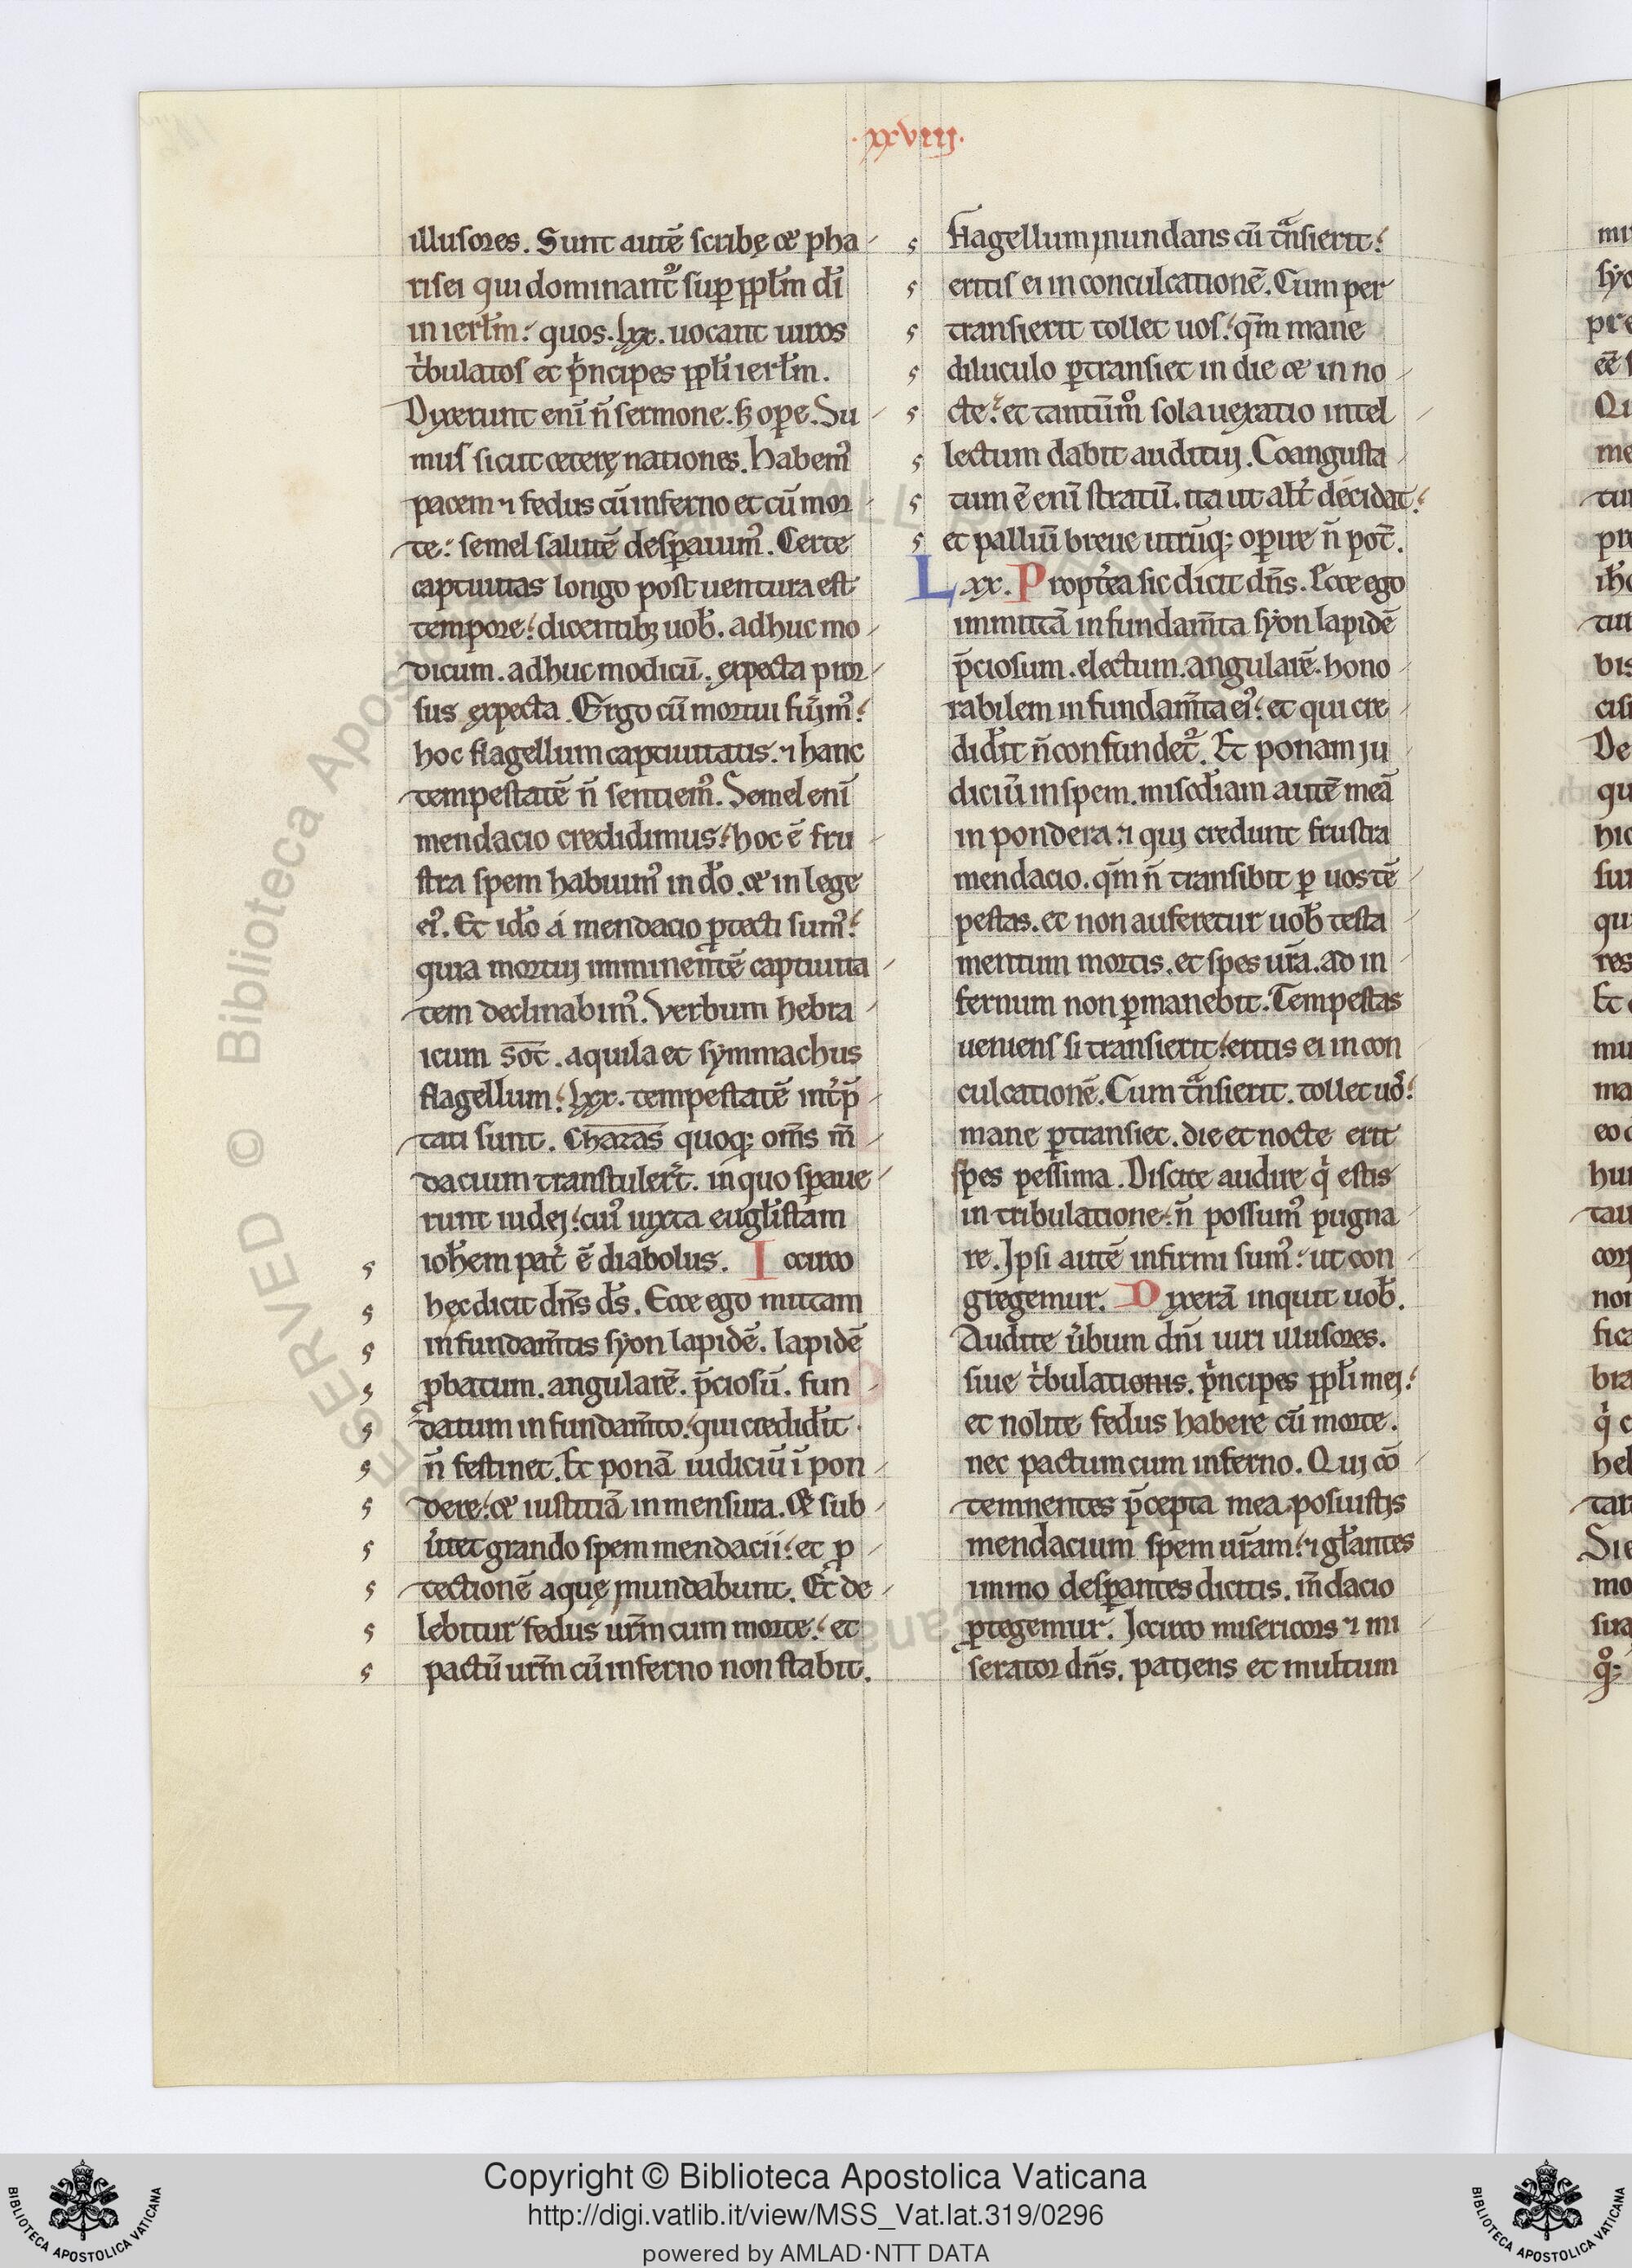 ·xxviij·
illusores. Sunt autē scribę et pha
risei qui dominant᷒ suꝑ ppl̄m dī
in ierl̄m: quos .lxx. uocant uiros
t̓bulatos et p̓ncipes ppl̄i ierl̄m.
Dixerunt enī n̄ sermone. sꝫ oꝑe. Su
mus sicut ceterę nationes. habem᷒
pacem ⁊ fedus cū inferno et cū mor
te: semel salutē desꝑauim᷒. Certe
captiuitas longo post uentura est
tempore: dicentibꝫ uob̄. adhuc mo
dicum. adhuc modicū. expecta pror
sus expecta. Ergo cū mortui fu̓im᷒:
hoc flagellum captiuitatis. ⁊ hanc
tempestatē n̄ sentiem᷒. Semel enī
mendacio credidimus: hoc ē fru
stra spem habuim᷒ in dō. et in lege
ei᷒. Et idō á mendacio ꝓtecti sum᷒:
quia mortui imminentē captiuita
tem declinabim᷒. Verbum hebra
icum sōt. aquila et symmachus
flagellum: lxx. tempestatē int̓p̄
tati sunt. Chazas quoq; om̄s m̄
dacium transtuler̄t. in quo sꝑaue
runt iudei: cui᷒ iuxta eugl̄istam
ioh̄em pat̓ ē diabolus. Iccirco
hec dicit dn̄s ds̄. Ecce ego mittam
in fundam̄tis syon lapidē. lapidē
ꝓbatum. angularē. p̄ciosū. fun
datum in fundam̄to: qui credid̓it
n̄ festinet. Et ponā iudiciū ī pon
dere: et iustitiā in mensura. Et sub
u̓tet grando spem mendacii: et ꝓ
tectionē aquę inundabunt. Et de
lebitur fedus ur̄m cum morte: et
pactū ur̄m cū inferno non stabit.
Flagellum inundans cū t̄nsierit:
eritis ei in conculcationē. Cum per
transierit tollet uos: qm̄ mane
diluculo ꝑtransiet in die et in no
cte: et tantūmº sola uexatio intel
lectum dabit auditui. Coangusta
tum ē enī stratū. ita ut alt̓ décidat:
et palliū breue utrūq; oꝑire n̄ pot̄.
Lxx. Propt̓ea sic dicit dn̄s. Ecce ego
immittā in fundam̄ta syon lapidē
p̄ciosum. electum. angularē. hono
rabilem in fundam̄ta ei᷒: et qui cre
did̓it n̄ confundet᷒. Et ponam iu
diciū in spem. misc̄diam autē meā
in pondera. ⁊ qui credunt frustra
mendacio. qm̄ n̄ transibit ꝑ uos tē
pestas. et non auferetur uob̄ testa
mentum mortis. et spes ur̄a. ad in
fernum non ꝑmanebit. Tempestas
ueniens si transierit: eritis ei in con
culcationē. Cum t̄nsierit. tollet uos:
mane ꝑtransiet. die et nocte erit
spes pessima. Discite audire q̓ estis
in tribulatione: n̄ possum᷒ pugna
re. Ipsi autē infirmi sum᷒: ut con
gregemur. Dixerā inquit uob̄.
Audite u̓bum dn̄i uiri illusores.
siue t̓bulationis. p̓ncipes ppl̄i mei:
et nolite fedus habere cū morte.
nec pactum cum inferno. Qui cō
temnentes p̄cepta mea posuistis
mendacium spem ur̄am: ⁊ gl̄antes
immo desꝑantes dicitis. m̄dacio
ꝓtegemur. Iccirco misericors ⁊ mi
serator dn̄s. patiens et multum
Copyright © Biblioteca Apostolica Vaticana
http://digi.vatlib.it/view/MSS_Vat.lat.319/0296
powered by AMLAD·NTT DATA